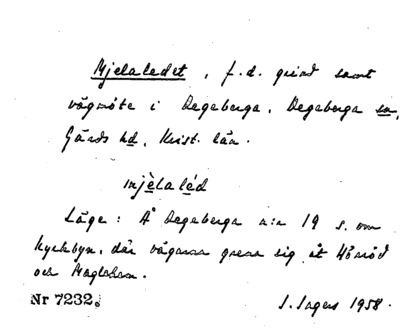 Mjelaledet, f.d. grind samt
vägmöte i Degeberga, Degeberga sn,
Gärds hd, Krist. län.
mjèlaléd
Läge: Å Degeberga n:r 19 s. om
kyrkbyn, där vägarna grena sig åt Hörröd
och Maglehem.
Nr 7232.
1958.